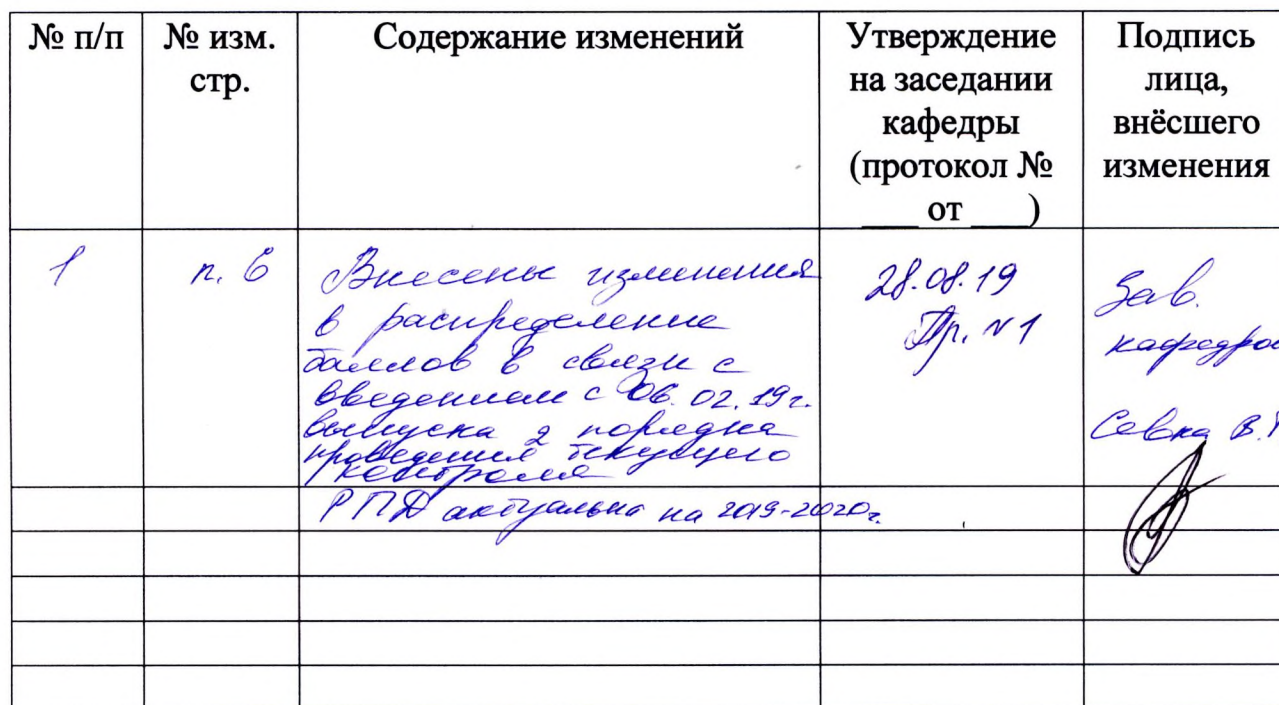 № п/п
№ изм.
стр.
Содержание изменений
Утверждение
на заседании
кафедры
(протокол №
____ от ____)
Подпись
лица,
внёсшего
изменения
1
п. 6
Внесены изменения
в распределение
баллов в связи с
введением с 06.02.19г.
выпуска 2 порядка
проведения текущего
контроля
РПД актуальна на 2019-2020г.
28.08.19
Пр. №1
Зав.
кафедрой
Севка В.